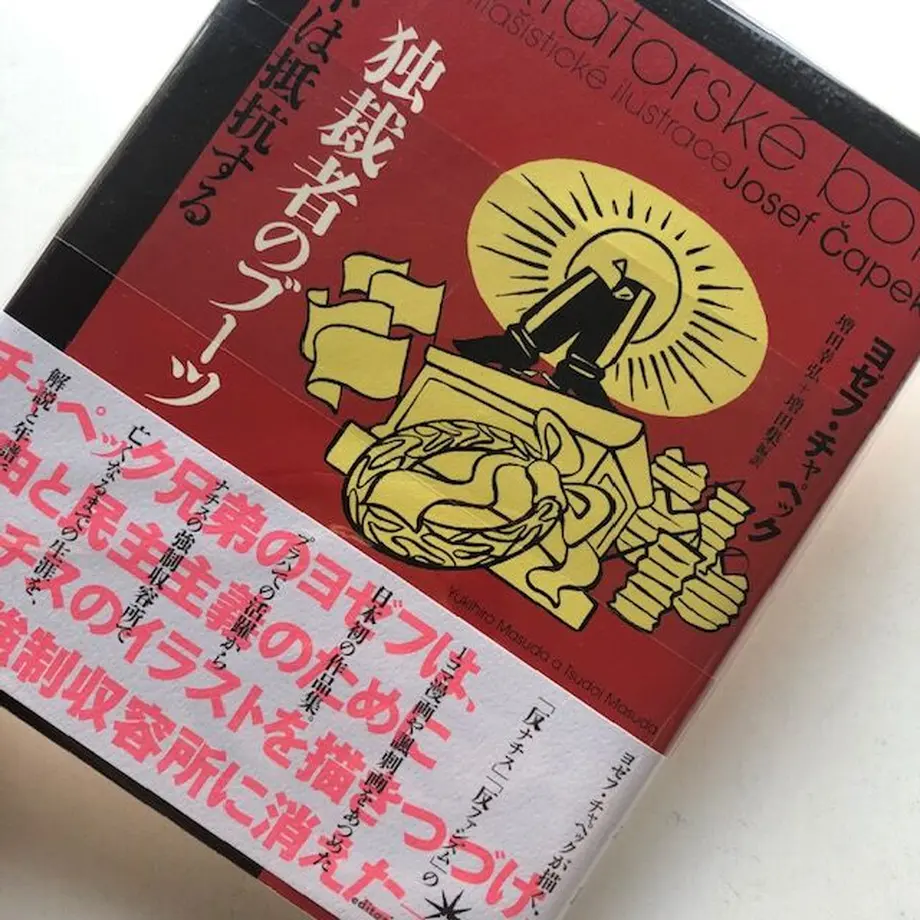 átorské bo
ašistické ilustrace
Josef Čapek
独裁者のブーツ
は抵抗する
ヨゼフ・チャペック
増田幸弘+増田集 編訳
Yukihiro Masuda a Tsudoi Masuda
チャペック兄弟のヨゼフは、
由と民主主義のために
チスのイラストを描きつづけ、
強制収容所に消えた
ヨゼフ・チャペックが描く、
「反ナチス」「反ファシズム」の
1コマ漫画や諷刺画をあつめた
日本初の作品集。
プラハでの活躍から
ナチスの強制収容所で
亡くなるまでの生涯を、
解説と年譜
editori